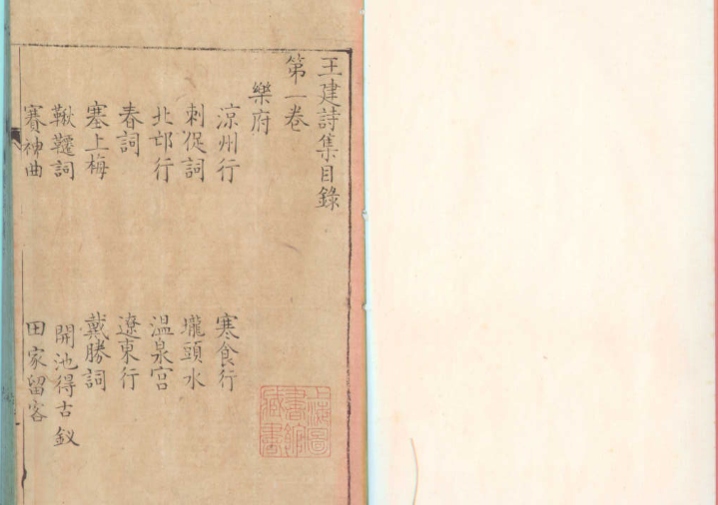 王建詩集目錄
第一卷
樂府
涼州行 寒食行
刺促詞 壠頭水
北邙行 溫泉宮
春詞 遼東行
塞上梅 戴勝詞
鞦韆詞 開池得古釵
賽神曲 田家留客
上海圖書館藏書